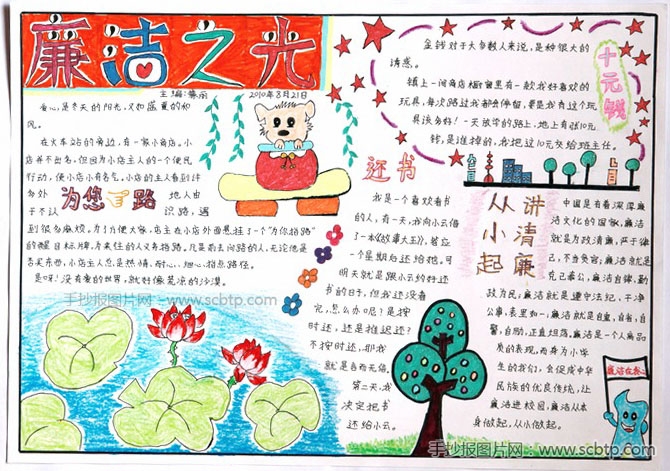 廉洁之光
主编:蔡羽
2010年8月21日
爱心,是冬天的阳光,又如盛夏的和
风。
在火车站的旁边,有一家小商店。小
店并不出名,但因为小店主人的一个便民
行动,使小店小有名气。小店的主人看到许
多外
地人由
于不认
识路,遇
为您指路
到很多麻烦。为了方便大家,店主在小店外面悬挂了一个"为你指路"
的醒目标牌,为来往的人义务指路。凡是前去问路的人,无论他是
否买东西,小店主人总是热情、耐心、细心,指点路径。
是呀!没有爱的世界,就好像荒凉的沙漠。
十元钱
金钱对于大多数人来说,是种很大的
诱惑。
镇上一间商店橱窗里有一款我好喜欢的
玩具,每次路过我都会停留,要是我有这个玩
具该多好!一天放学的路上,地上有张10元
钱,是谁掉的,我把这10元交给班主任。
还书
我是一个喜欢看书
的人,有一天,我向小云借
了一本《故事大王》,答应
一个星期后还给她。可
明天就是跟小云约好还
书的日子,但我还没看
完,怎么办呢?是按
时还,还是推迟还?
不按时还,那我
就是言而无信。
第二天,我
决定把书
还给小云。
讲清廉
从小起
中国是有着深厚廉
洁文化的国家,廉洁
就是为政清廉,严于律
己,不贪赞窃;廉洁就是
克己奉公,廉洁自律,勤
政为民;廉洁就是遵守法纪,干净
公事,表里如一;廉洁就是自重,自省,自
警,自励,正直坦荡,廉洁是一个人高品
质的表现,而身为小学
生的我们,会促成中华
民族的优良传统,让
廉洁进校园,廉洁从本
身做起,从小做起。
手抄报图片网-www.scbtp.com
手抄报图片网:www.scbtp.com